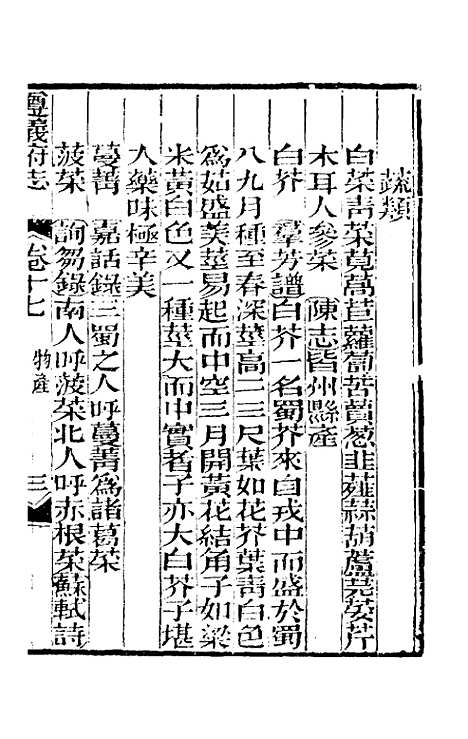 蔬類
白菜青菜莧萵苣蘿蔔苦蕒葱韭薤蒜葫蘆芫荽芹
木耳人參菜 陳志皆州縣產
白芥 羣芳譜白芥一名蜀芥來自戎中而盛於蜀
八九月種至春深莖高二三尺葉如花芥葉青白色
爲茹盛美莖易起而中空三月開黃花結角子如粱
米黃白色又一種莖大而中實者子亦大白芥子堪
入藥味極辛美
蔓菁 嘉話錄三蜀之人呼蔓菁爲諸葛菜
菠菜 詢芻錄南人呼菠菜北人呼赤根菜蘇軾詩
遵義府志 卷十七 物產 三